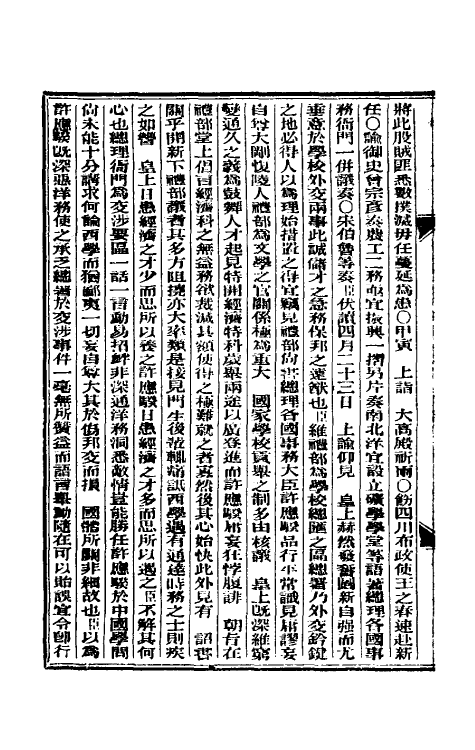 將此股賊匪悉數撲滅毋任蔓延爲患○甲寅　上詣　大高殿祈雨○飭四川布政使王之春速赴新
任○諭御史曾宗彥奏農工二務亟宜振興一摺另片奏南北洋宜設立礦學學堂等語著總理各國事
務衙門一併議奏○宋伯魯等奏臣伏讀四月二十三日　上諭仰見　皇上赫然發奮圖新自強而尤
垂意於學校外交兩事此誠儲才之急務保邦之遠猷也臣維禮部爲學校總匯之區總署乃外交鈐鍵
之地必得人以爲理始措置之得宜竊見禮部尚書總理各國事務大臣許應騤品行平常識見庸謬妄
自尊大剛愎凌人禮部爲文學之官關係極爲重大　國家學校貢舉之制多由核議　皇上既深維窮
變通久之義爲鼓鑄人才起見特開經濟特科歲舉兩途以廣登進而許應騤庸妄狂悖腹誹　朝旨在
禮部堂上倡言經濟科之無益務欲裁減其額使得之極難就之者寡然後其心始快此外見有　詔書
關乎開新下禮部議者其多方阻撓亦大率類是接見門生後輩輒痛詆西學遇有通達時務之士則疾
之如讐　皇上日患經濟之才少而思所以養之許應騤日患經濟之才多而思所以遏之臣不解其何
心也總理衙門爲交涉要區一話一言動易招衅非深通洋務洞悉敵情豈能勝任許應騤於中國學問
尚未能十分講求何論西學而猥鄙夷一切妄自尊大其於傷邦交而損　國體所關非細故也臣以爲
許應騤既深惡洋務使之承乏總署於交涉事件一毫無所裨益而語言舉動隨在可以貽誤宜令卽行